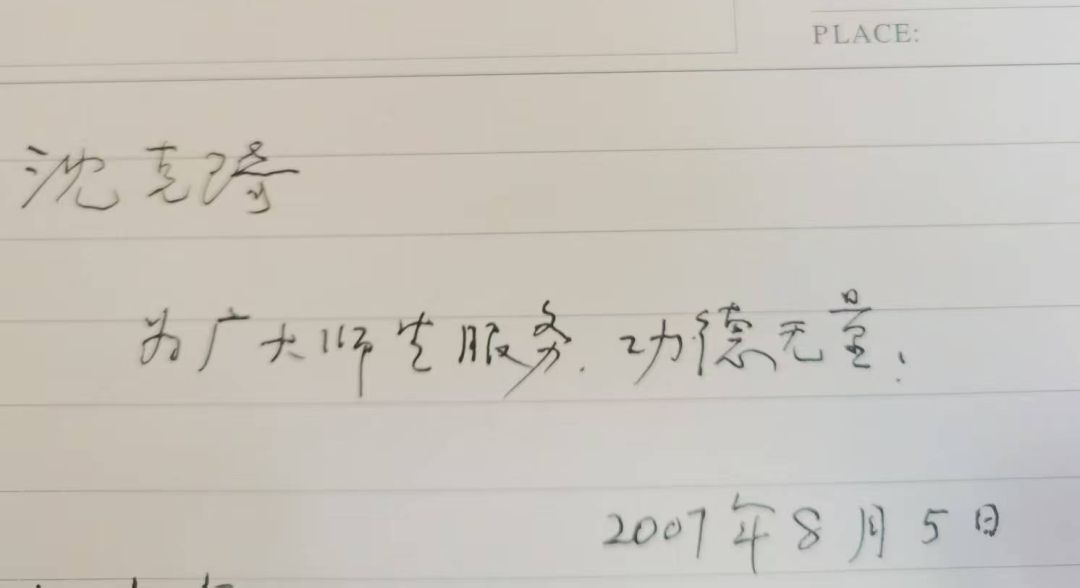 PLACE:
沈克琦
为广大师生服务.功德无量!
2007年8月5日